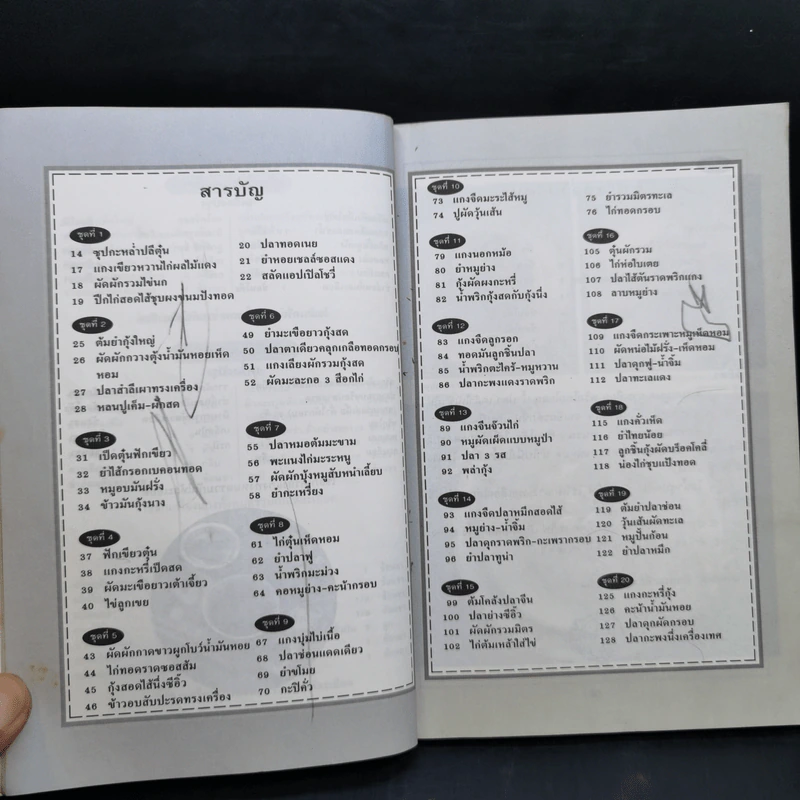 สารบัญ
ชุดที่ 1
14 ซุปกะหล่ำปลีตุ๋น
17 แกงเขียวหวานไก่ผลไม้แดง
18 ผัดผักรวมไข่นก
19 ปีกไก่สอดไส้ชุบผงขนมปังทอด
20 ปลาทอดเนย
21 ยำหอยเชลล์ซอสแดง
22 สลัดแอปเปิลโชวี่
ชุดที่ 2
25 ต้มยำกุ้งใหญ่
26 ผัดผักกวางตุ้งน้ำมันหอยเห็ด
หอม
27 ปลาสำลีเผาทรงเครื่อง
28 หลนปูเค็ม-ผักสด
ชุดที่ 3
31 เป็ดตุ๋นฟักเขียว
32 ยำไส้กรอกเบคอนทอด
33 หมูอบมันฝรั่ง
34 ข้าวมันกุ้งนาง
ชุดที่ 4
37 ฟักเขียวตุ๋น
38 แกงกะหรี่เป็ดสด
39 ผัดมะเขือยาวเต้าเจี้ยว
40 ไข่ลูกเขย
ชุดที่ 5
43 ผัดผักกาดขาวผูกโบว์น้ำมันหอย
44 ไก่ทอดราดซอสส้ม
45 กุ้งสอดไส้นึ่งซีอิ๊ว
46 ข้าวอบสับปะรดทรงเครื่อง
ชุดที่ 6
49 ยำมะเขือยาวกุ้งสด
50 ปลาตาเดียวคลุกเกลือทอดกรอบ
51 แกงเลียงผักรวมกุ้งสด
52 ผัดมะละกอ 3 สีอกไก่
ชุดที่ 7
55 ปลาหมอต้มมะขาม
56 พะแนงไก่มะระหนู
57 ผัดผักบุ้งหมูสับหนำเลี้ยบ
58 ยำกะเหรี่ยง
ชุดที่ 8
61 ไก่ตุ๋นเห็ดหอม
62 ยำปลาฟู
63 น้ำพริกมะม่วง
64 คอหมูย่าง-คะน้ากรอบ
ชุดที่ 9
67 แกงบุ่มไบ่เนื้อ
68 ปลาช่อนแดดเดียว
69 ยำขโมย
70 กะปิคั่ว
ชุดที่ 10
73 แกงจืดมะระไส้หมู
74 ปูผัดวุ้นเส้น
75 ยำรวมมิตรทะเล
76 ไก่ทอดกรอบ
ชุดที่ 11
79 แกงนอกหม้อ
80 ยำหมูย่าง
81 กุ้งผัดผงกะหรี่
82 น้ำพริกกุ้งสดกับกุ้งนึ่ง
ชุดที่ 12
83 แกงจืดลูกรอก
84 ทอดมันลูกชิ้นปลา
85 น้ำพริกตะไคร้-หมูหวาน
86 ปลากะพงแดงราดพริก
ชุดที่ 13
89 แกงจีนจ๊วนไก่
90 หมูผัดเผ็ดแบบหมูป่า
91 ปลา 3 รส
92 พล่ากุ้ง
ชุดที่ 14
93 แกงจืดปลาหมึกสอดไส้
94 หมูย่าง-น้ำจิ้ม
95 ปลาดุกราดพริก-กะเพรากรอบ
96 ยำปลาทูน่า
ชุดที่ 15
99 ต้มโคล้งปลาจีน
100 ปลาย่างซีอิ๊ว
101 ผัดผักรวมมิตร
102 ไก่ต้มเหล้าใส่ไข่
ชุดที่ 16
105 ตุ๋นผักรวม
106 ไก่ห่อใบเตย
107 ปลาไส้ตันราดพริกแกง
108 ลาบหมูย่าง
ชุดที่ 17
109 แกงจืดกระเพาะหมูเห็ดหอม
110 ผัดหน่อไม้ฝรั่ง-เห็ดหอม
111 ปลาดุกฟู-น้ำจิ้ม
112 ปลาทะเลแดง
ชุดที่ 18
115 แกงคั่วเห็ด
116 ยำไทยน้อย
117 ลูกชิ้นกุ้งผัดบร็อคโคลี่
118 น่องไก่ชุบแป้งทอด
ชุดที่ 19
119 ต้มยำปลาช่อน
120 วุ้นเส้นผัดทะเล
121 หมูปั้นก้อน
122 ยำปลาหมึก
ชุดที่ 20
125 แกงกะหรี่กุ้ง
126 คะน้าน้ำมันหอย
127 ปลาดุกผัดกรอบ
128 ปลากะพงนึ่งเครื่องเทศ